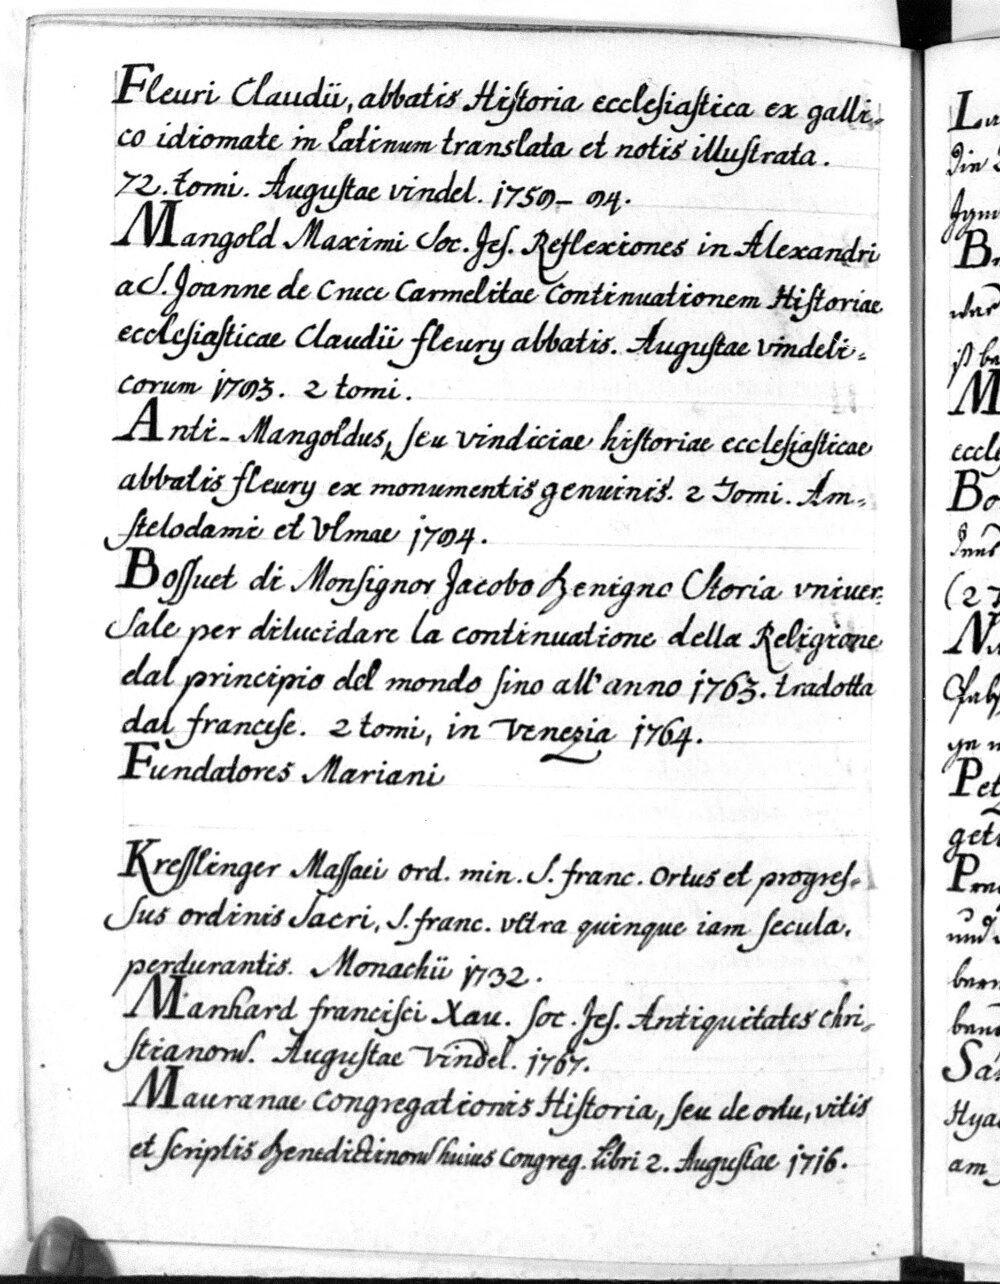 Fleuri Claudii, abbatis Historia ecclesiastica ex galli-
co idiomate in Latinum translata et notis illustrata.
72. tomi. Augustae vindel. 1759 – 94.
Mangold Maximi Soc. Jes. Reflexiones in Alexandri
a S. Joanne de cruce Carmelitae Continuationem Historiae
ecclesiasticae Claudii fleury abbatis. Augustae vindeli-
corum 1793. 2 tomi.
Anti-Mangoldus, seu vindiciae historiae ecclesiasticae
abbatis fleury ex monumentis genuinis. 2 Tomi. Am-
stelodami et Vlmae 1794.
Bossuet di Monsignor Jacobo Benigno Storia vniver-
sale per dilucidare la continuatione della Religione
dal principio del mondo sino all'anno 1763. tradotta
dal francese. 2 tomi, in Venezia 1764.
Fundatores Mariani
Kresslinger Massaei ord. min. S. franc. Ortus et progres-
sus ordinis sacri, S. franc. vltra quinque iam secula,
perdurantis. Monachii 1732.
Manhard francisci Xav. Soc. Jes. Antiquitates chri-
stianorum. Augustae Vindel. 1767.
Mauranae Congregationis Historia, seu de ortu, vitis
et scriptis Benedictinorum huius Congreg. Libri 2. Augustae 1716.